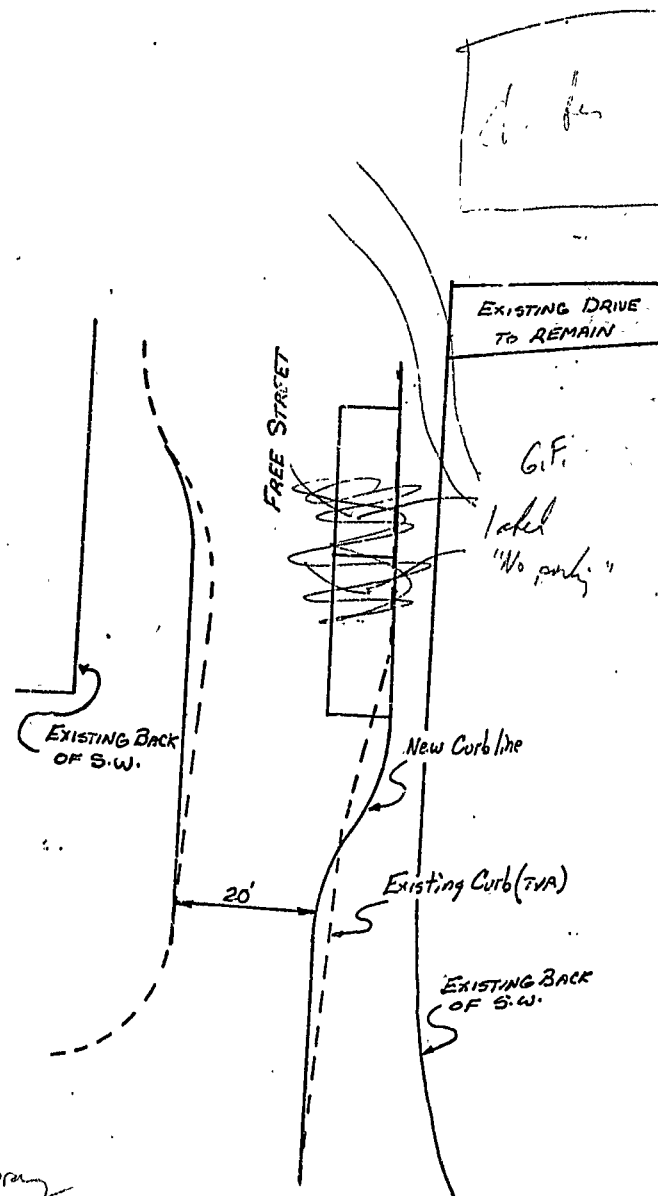 EXISTING DRIVE
TO REMAIN
FREE STREET
G.F.
label
"No parking"
EXISTING BACK
OF S.W.
New Curb line
20'
Existing Curb (TVA)
EXISTING BACK
OF S.W.